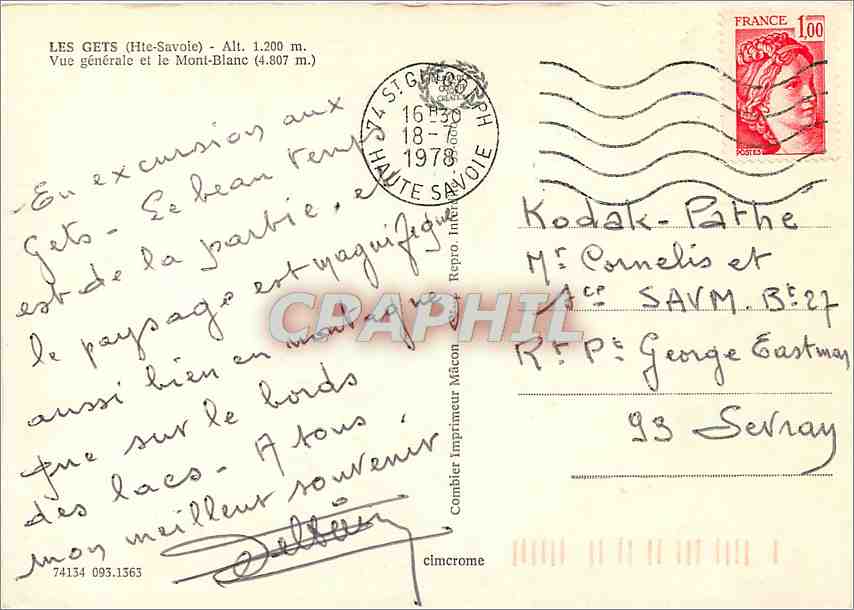 LES GETS (Hte-Savoie) - Alt. 1.200 m.
Vue générale et le Mont-Blanc (4.807 m.)
En excursion aux
Gets - Le beau temps
est de la partie, et
le paysage est magnifique
aussi bien en montagne
que sur le bords
des lacs - A tous
mon meilleur souvenir
74134 093.1363
cimcrome
Combier Imprimeur Mâcon
Repro. Inter
74 ST GINGOLPH
16H30
18-7
1978
HAUTE SAVOIE
FRANCE
1,00
POSTES
Kodak-Pathé
Mr Cornelis et
SAVM. Bt 27
Rt Pt George Eastman
93 Sevran
CRAPHIL